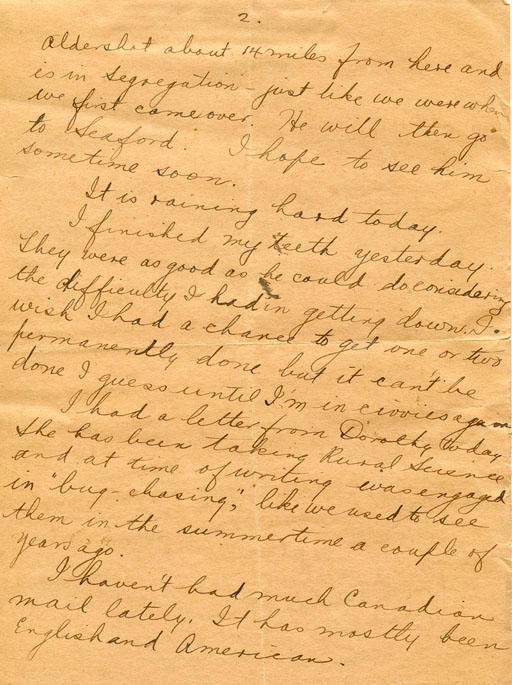 2.
Aldershot about 14 miles from here and
is in segregation - just like we were when
we first came over. He will then go
to Seaford. I hope to see him
sometime soon.
It is raining hard today.
I finished my teeth yesterday.
They were as good as he could do considering
the difficulty I had in getting down. I
wish I had a chance to get one or two
permanently done but it can't be
done I guess until I'm in civvies again
I had a letter from Dorothy today
She has been taking Rural Science
and at time of writing was engaged
in "bug-chasing", like we used to see
them in the summertime a couple of
years ago.
I haven't had much Canadian
mail lately. It has mostly been
English and American.